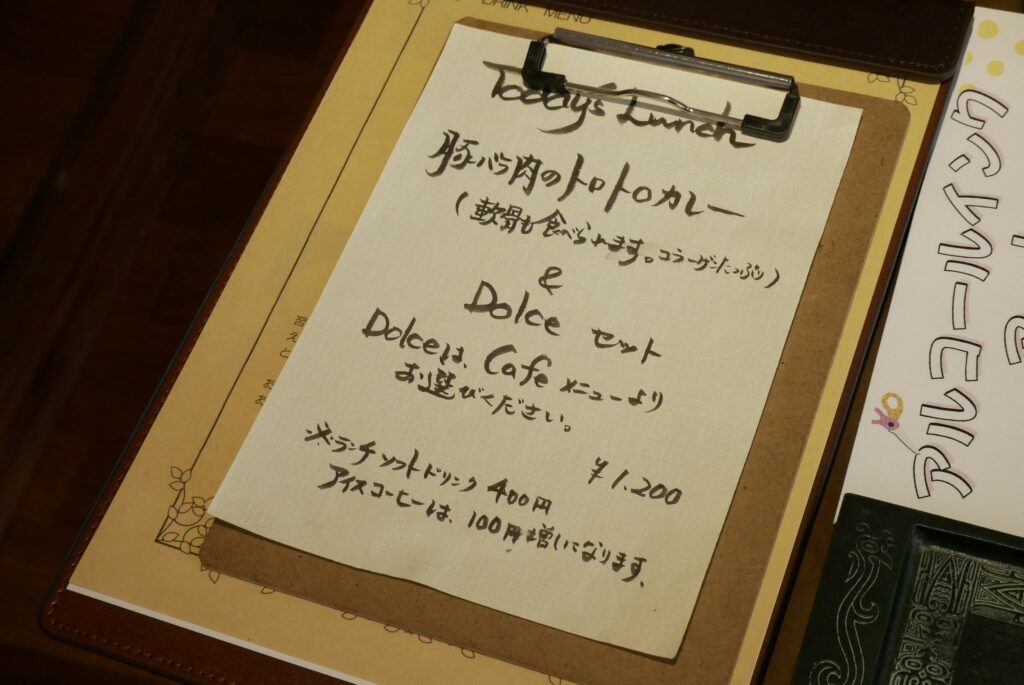 DRINK MENU
Today's Lunch
豚バラ肉のトロトロカレー
(軟骨も食べられます。コラーゲンたっぷり)
&
Dolce セット
Dolceは、Cafe メニューより
お選びください。
¥1,200
※ランチソフトドリンク 400円
アイスコーヒーは、100円増しになります。
アルコールインク